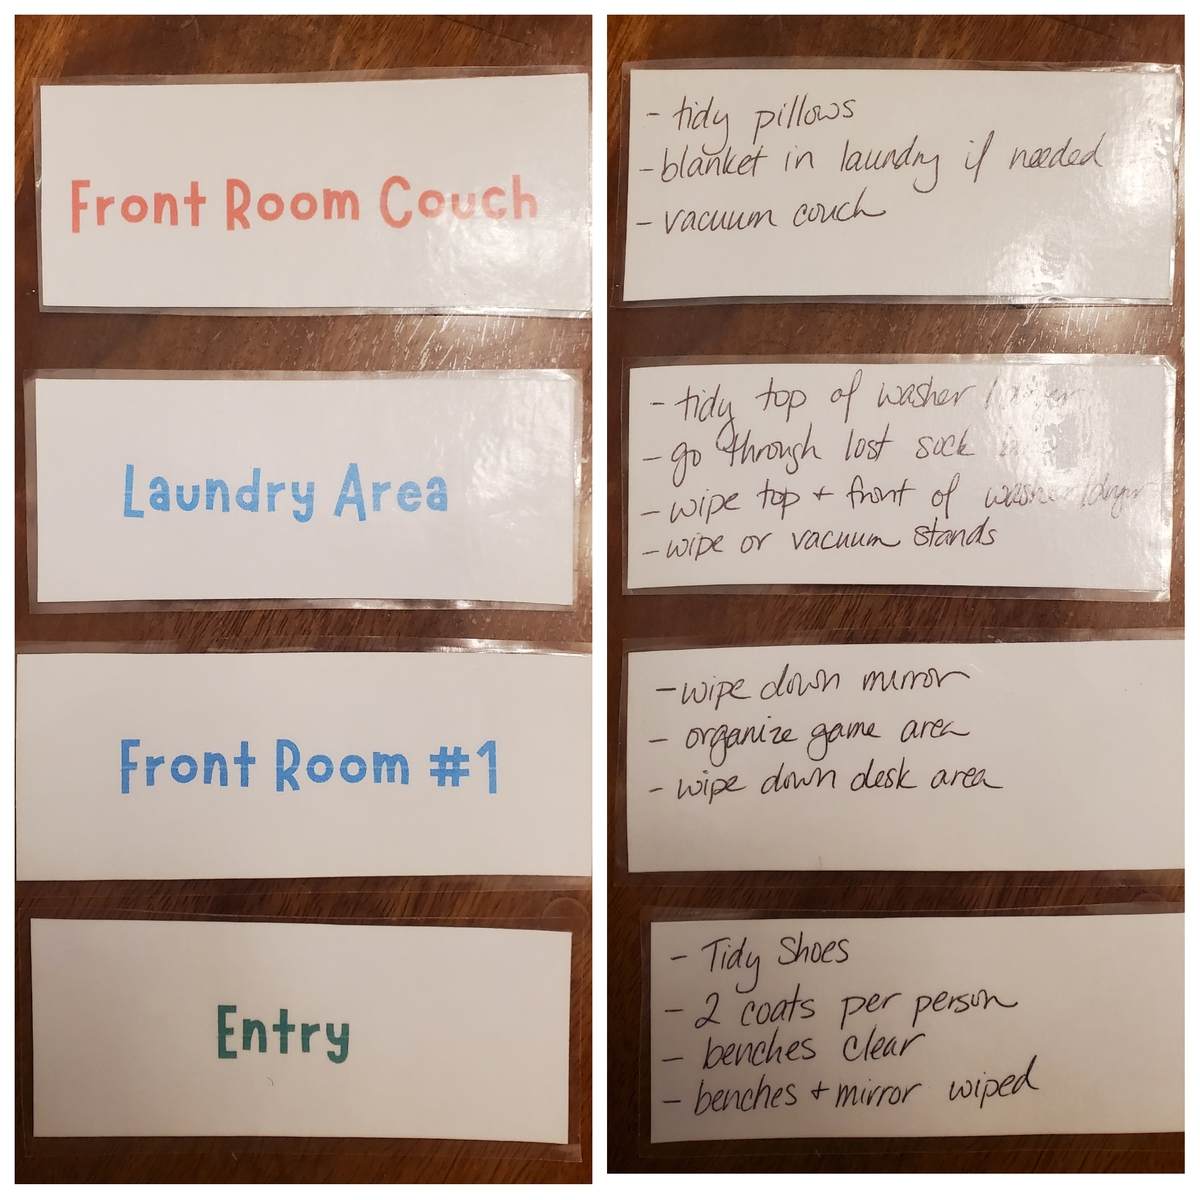 Front Room Couch
- tidy pillows
- blanket in laundry if needed
- vacuum couch
Laundry Area
- tidy top of washer
- go through lost sock
- wipe top + front of washer/dryer
- wipe or vacuum stands
Front Room #1
- wipe down mirror
- organize game area
- wipe down desk area
Entry
- Tidy Shoes
- 2 coats per person
- benches clear
- benches + mirror wiped